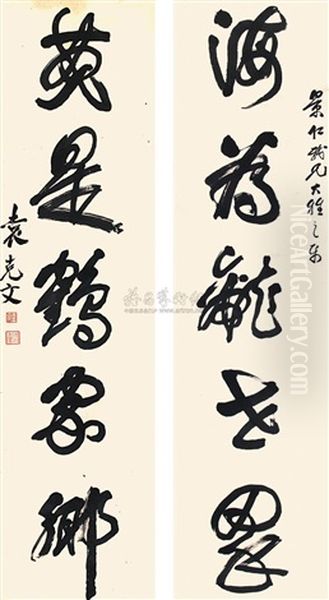 景仁
兄大雅之屬
海為龍世界
是鶴家鄉
袁克文
NiceArtGallery.com